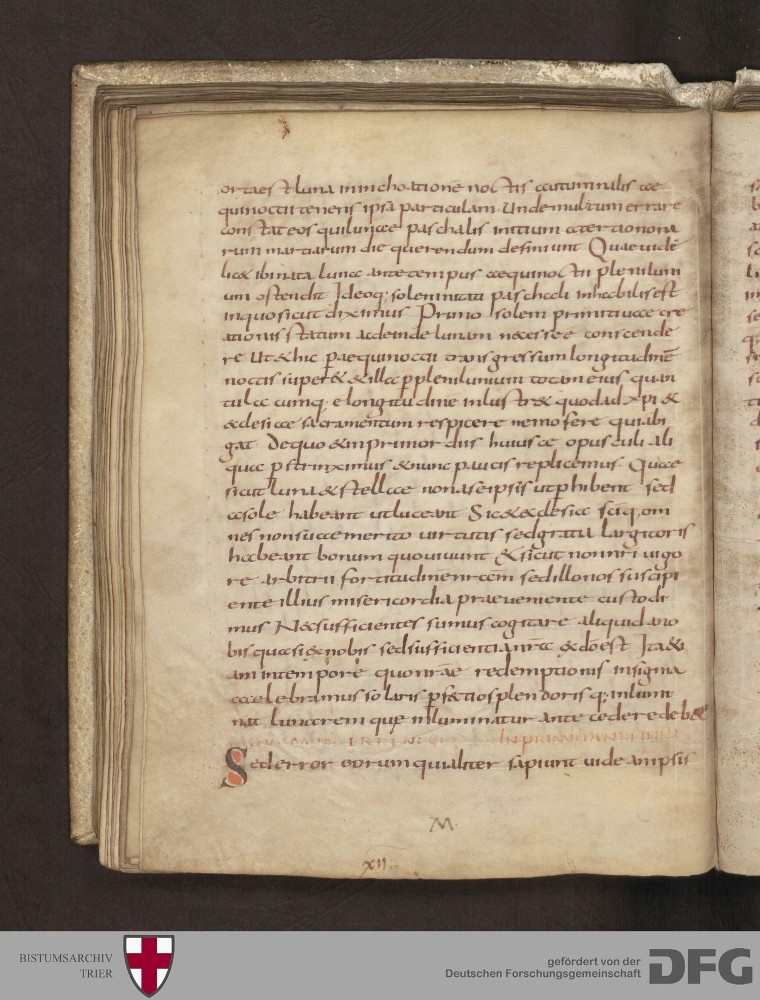 orta est luna in inchoationē noctis autumnalis ae
quinoctii teneris ipsa particulam Unde multum errare
constat eos qui lunae paschalis initium a tertio nona
rum martiarum die querendum definiunt Quae uidē
licet ibi nata luna ante tempus aequinoctii pleniluni
um ostendit Ideoq; solemnitati paschali inhabilis est
inquo sicut diximus Primo solem primitiuae cre
ationis statum ac deinde lunam necesse e conscende
re Ut & hic p aequinoctii transgressum longitudinē
noctis superet & illa p plenilunium totam eius quan
tulacumq; e longitudine inlustret quod ad xpi &
eclesiae sacramentum respicere nemo fere qui abi
gat De quo & in primordiis huiusce opusculi ali
qua pstrinximus & nunc paucis replicemus Quae
sicut luna & stellae non a se ipsis ut phibent sed
a sole habeant ut luceant Sic & eclesia sciq, om
nes non suae merito uirtutis sed gratia largitoris
habeant bonum quo uiuunt & sicut non nri uigo
re arbitrii fortitudinē nram sed illo nos suscipi
ente illius misericordia praeueniente custodi
mus Nec sufficientes sumus cogitare aliquid a no
bis quasi ex nobis sed sufficientia nra ex dō est Ita &
iam in tempore quo nrae redemptionis insignia
caelebramus solaris pfectio splendoris q; inlumi
nat lunarem que inluminatur antecedere debet
In primi
Sed error eorum qui aliter sapiunt uide an ipsis
M
XII
BISTUMSARCHIV
TRIER
gefördert von der
Deutschen Forschungsgemeinschaft
DFG